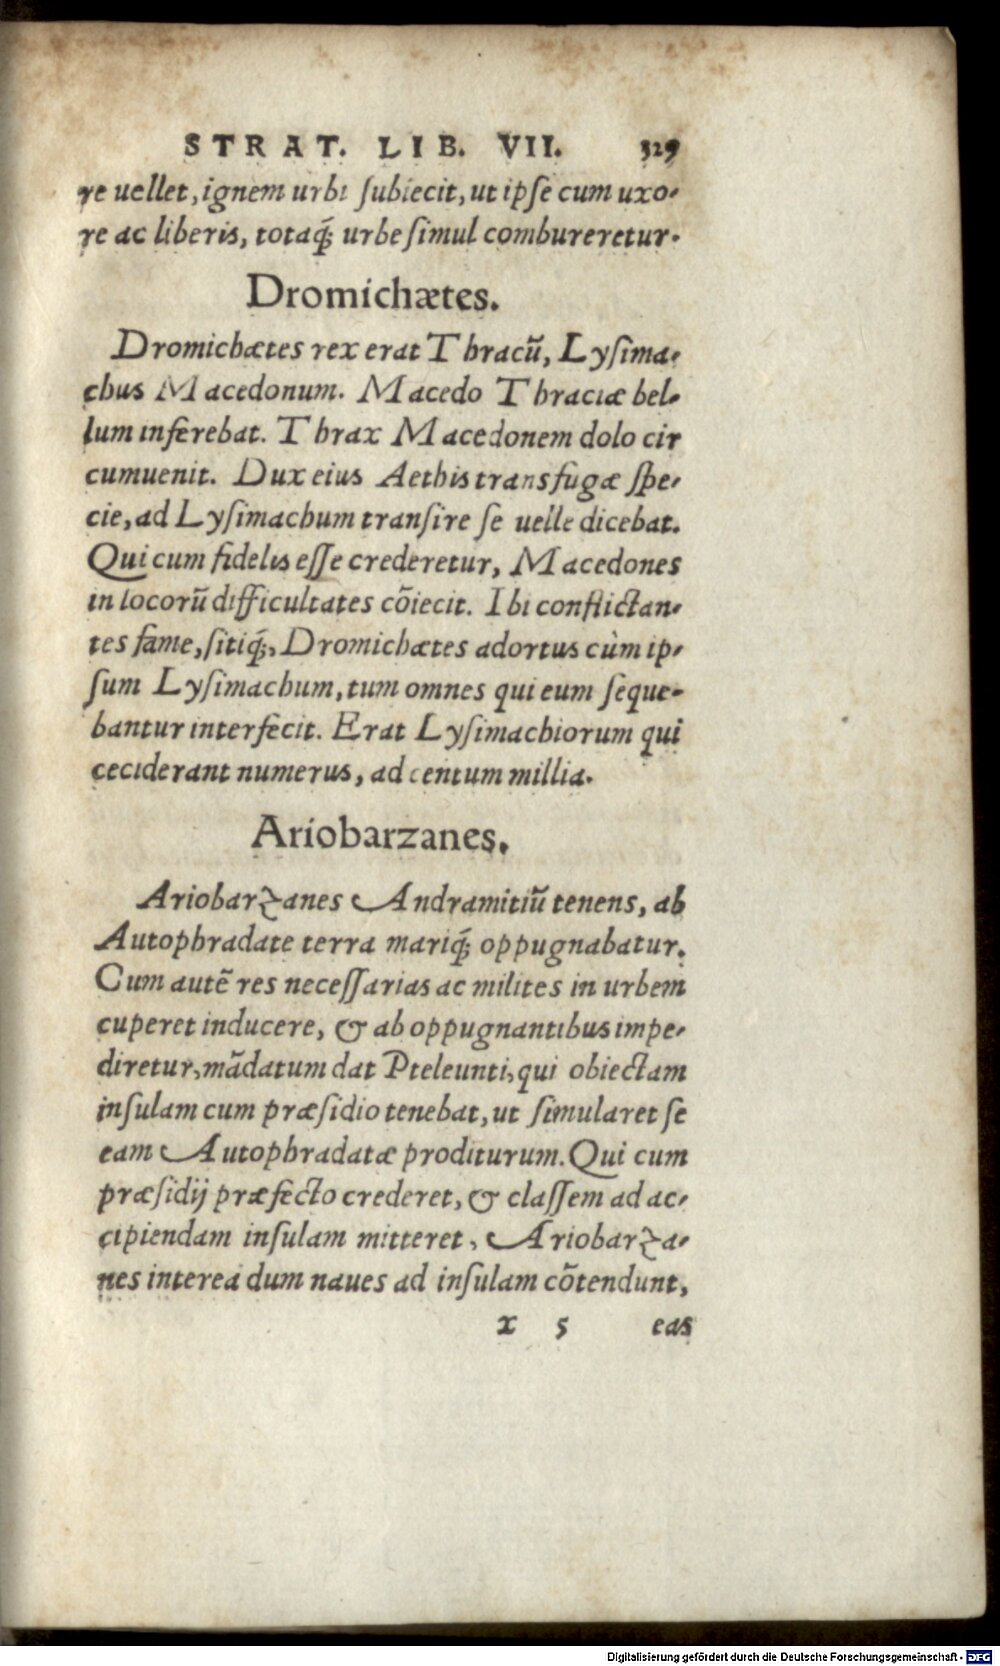 STRAT. LIB. VII. 329
re uellet, ignem urbi ſubiecit, ut ipſe cum uxo-
re ac liberis, totaq́; urbe ſimul combureretur.
Dromichætes.
Dromichætes rex erat Thracũ, Lyſima-
chus Macedonum. Macedo Thraciæ bel-
lum inferebat. Thrax Macedonem dolo cir
cumuenit. Dux eius Aethis transfugæ ſpe-
cie, ad Lyſimachum tranſire ſe uelle dicebat.
Qui cum fidelis eſſe crederetur, Macedones
in locorũ difficultates cõiecit. Ibi conflictan-
tes fame, ſitiq́;, Dromichætes adortus cùm ip-
ſum Lyſimachum, tum omnes qui eum ſeque-
bantur interfecit. Erat Lyſimachiorum qui
ceciderant numerus, ad centum millia.
Ariobarzanes.
Ariobarzanes Andramitiũ tenens, ab
Autophradate terra mariq́; oppugnabatur.
Cum autẽ res neceſſarias ac milites in urbem
cuperet inducere, & ab oppugnantibus impe-
diretur, mãdatum dat Pteleunti, qui obiectam
inſulam cum præſidio tenebat, ut ſimularet ſe
eam Autophradatæ proditurum. Qui cum
præſidij præfecto crederet, & claſſem ad ac-
cipiendam inſulam mitteret, Ariobarza-
nes interea dum naues ad inſulam cõtendunt,
x 5 eas
Digitalisierung gefördert durch die Deutsche Forschungsgemeinschaft - DFG